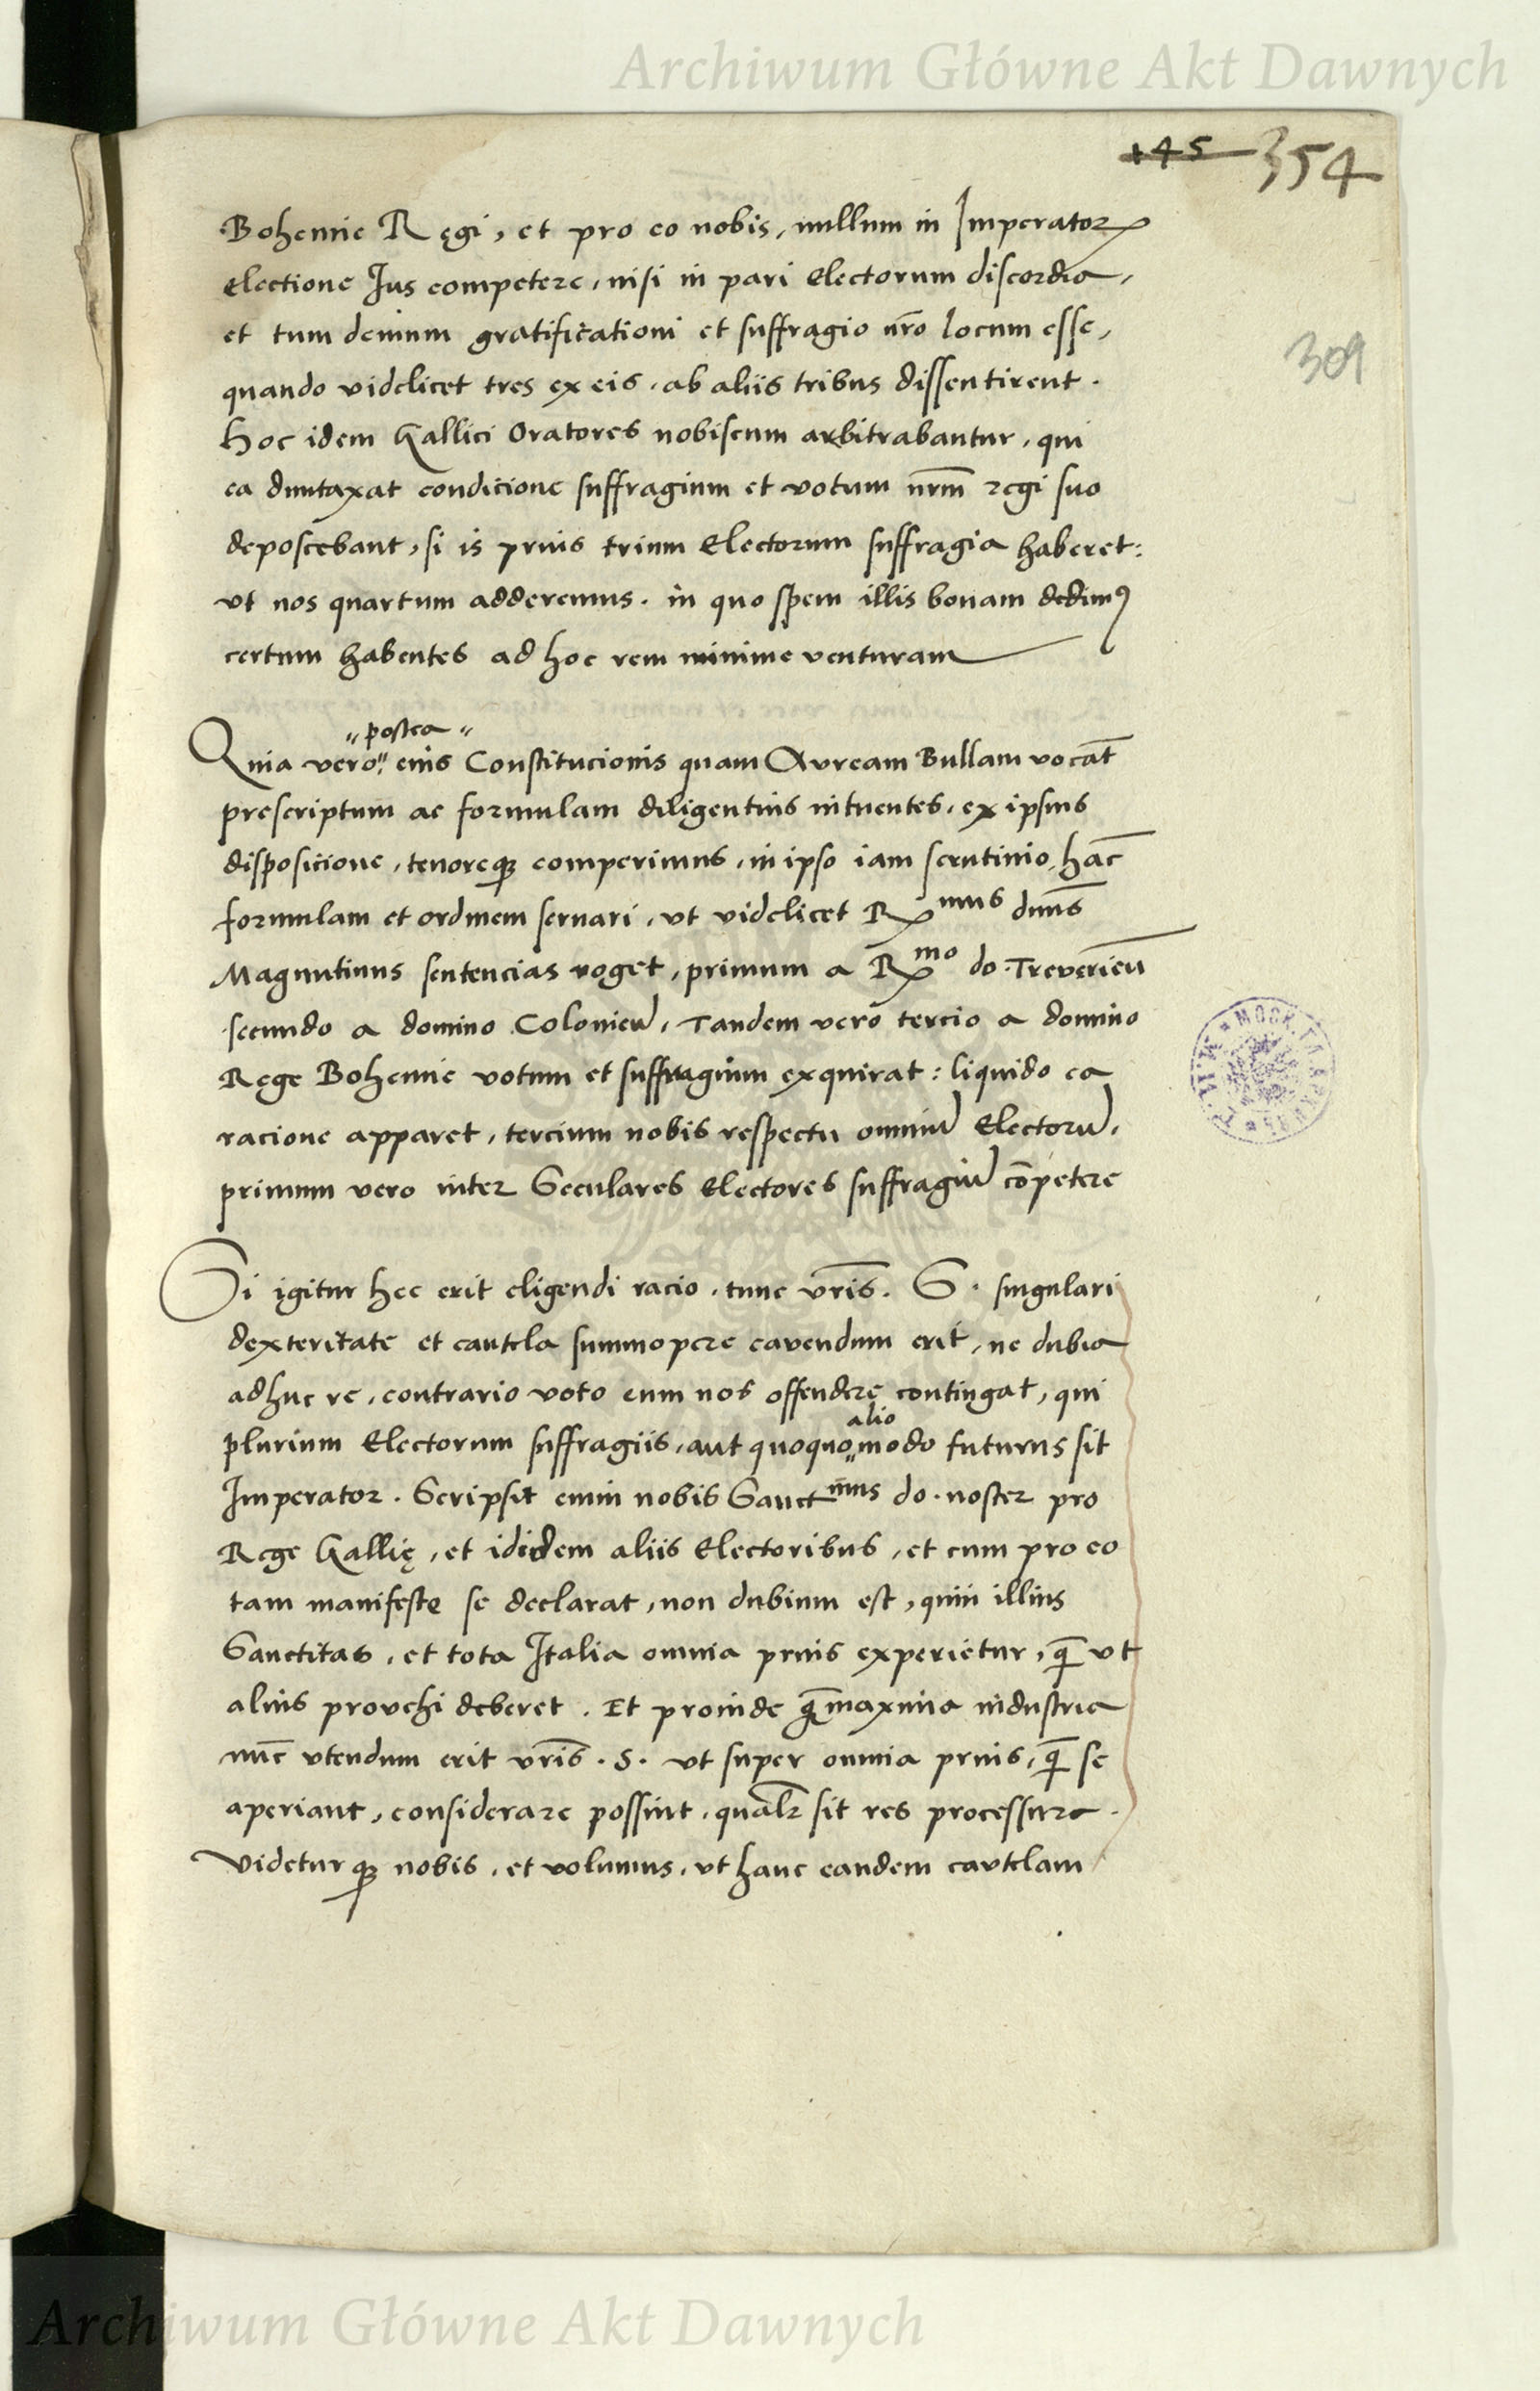 Archiwum Główne Akt Dawnych
145 354
309
Bohemie Ręgi, et pro eo nobis, nullum in Imperator
electione Ius competere, nisi in pari electorum discordia,
et tum demum gratificationi et suffragio nr̄o locum esse,
quando videlicet tres ex eis, ab aliis tribus dissentirent.
hoc idem Gallici Oratores nobiscum arbitrabantur, qui
ea duntaxat condicione suffragium et votum nrm̄ regi suo
deposcebant, si is prius trium electorum suffragia haberet:
vt nos quartum adderemus. in quo spem illis bonam dedimꝰ
certum habentes ad hoc rem minime venturam
postea
Quia vero eius Constitucionis quam Auream Bullam vocāt
prescriptum ac formulam diligentius intuentes, ex ipsius
disposicione, tenoreqꝫ comperimus, in ipso iam scrutinio, hāc
formulam et ordinem seruari, vt videlicet R mus dn̄us
Maguntinus sentencias roget, primum a R mo do. Treverien̄
secundo a domino Colonień, Tandem vero tercio a domino
Rege Bohemie votum et suffragium exquirat: liquido ea
racione apparet, tercium nobis respectu omniū electorū,
primum vero inter Seculares electores suffragiū cōpetere
Si igitur hec erit eligendi racio, tunc vr̄is. S. singulari
dexteritate et cautela summopere cavendum erit, ne dubia
adhuc re, contrario voto eum nos offendere contingat, qui
alio
plurium electorum suffragiis, aut quoquo modo futurus sit
Imperator. Scripsit enim nobis Sanct mus do. noster pro
Rege Gallię, et ididem aliis electoribus, et cum pro eo
tam manifeste se declarat, non dubium est, quin illius
Sanctitas, et tota Italia omnia prius experietur, q̄ vt
alius provehi deberet. Et proinde q̄maxima industria
nūc vtendum erit vr̄is. S. vt super omnia prius, q̄ se
aperiant, considerare possint, qualr̄ sit res processura.
Videturqꝫ nobis, et volumus, vt hanc eandem cautelam
Archiwum Główne Akt Dawnych